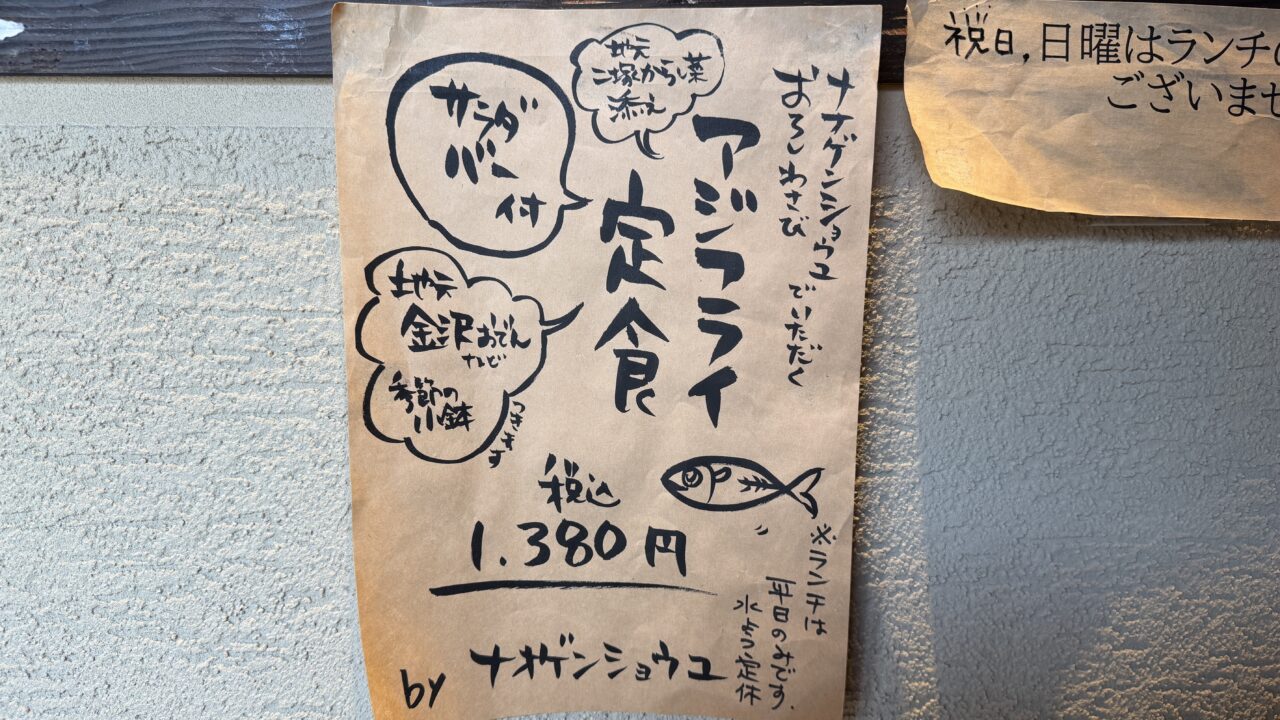 ナオゲンショウユ
おろしわさび でいただく
アジフライ
定食
地元
二塚からし菜
添え
サラダ
バー
付
地元
金沢おでん
など
季節の
小鉢
つきます
税込
1.380円
※ランチは
平日のみです。
水よう定休
by ナオゲンショウユ
祝日,日曜はランチ
ございませ